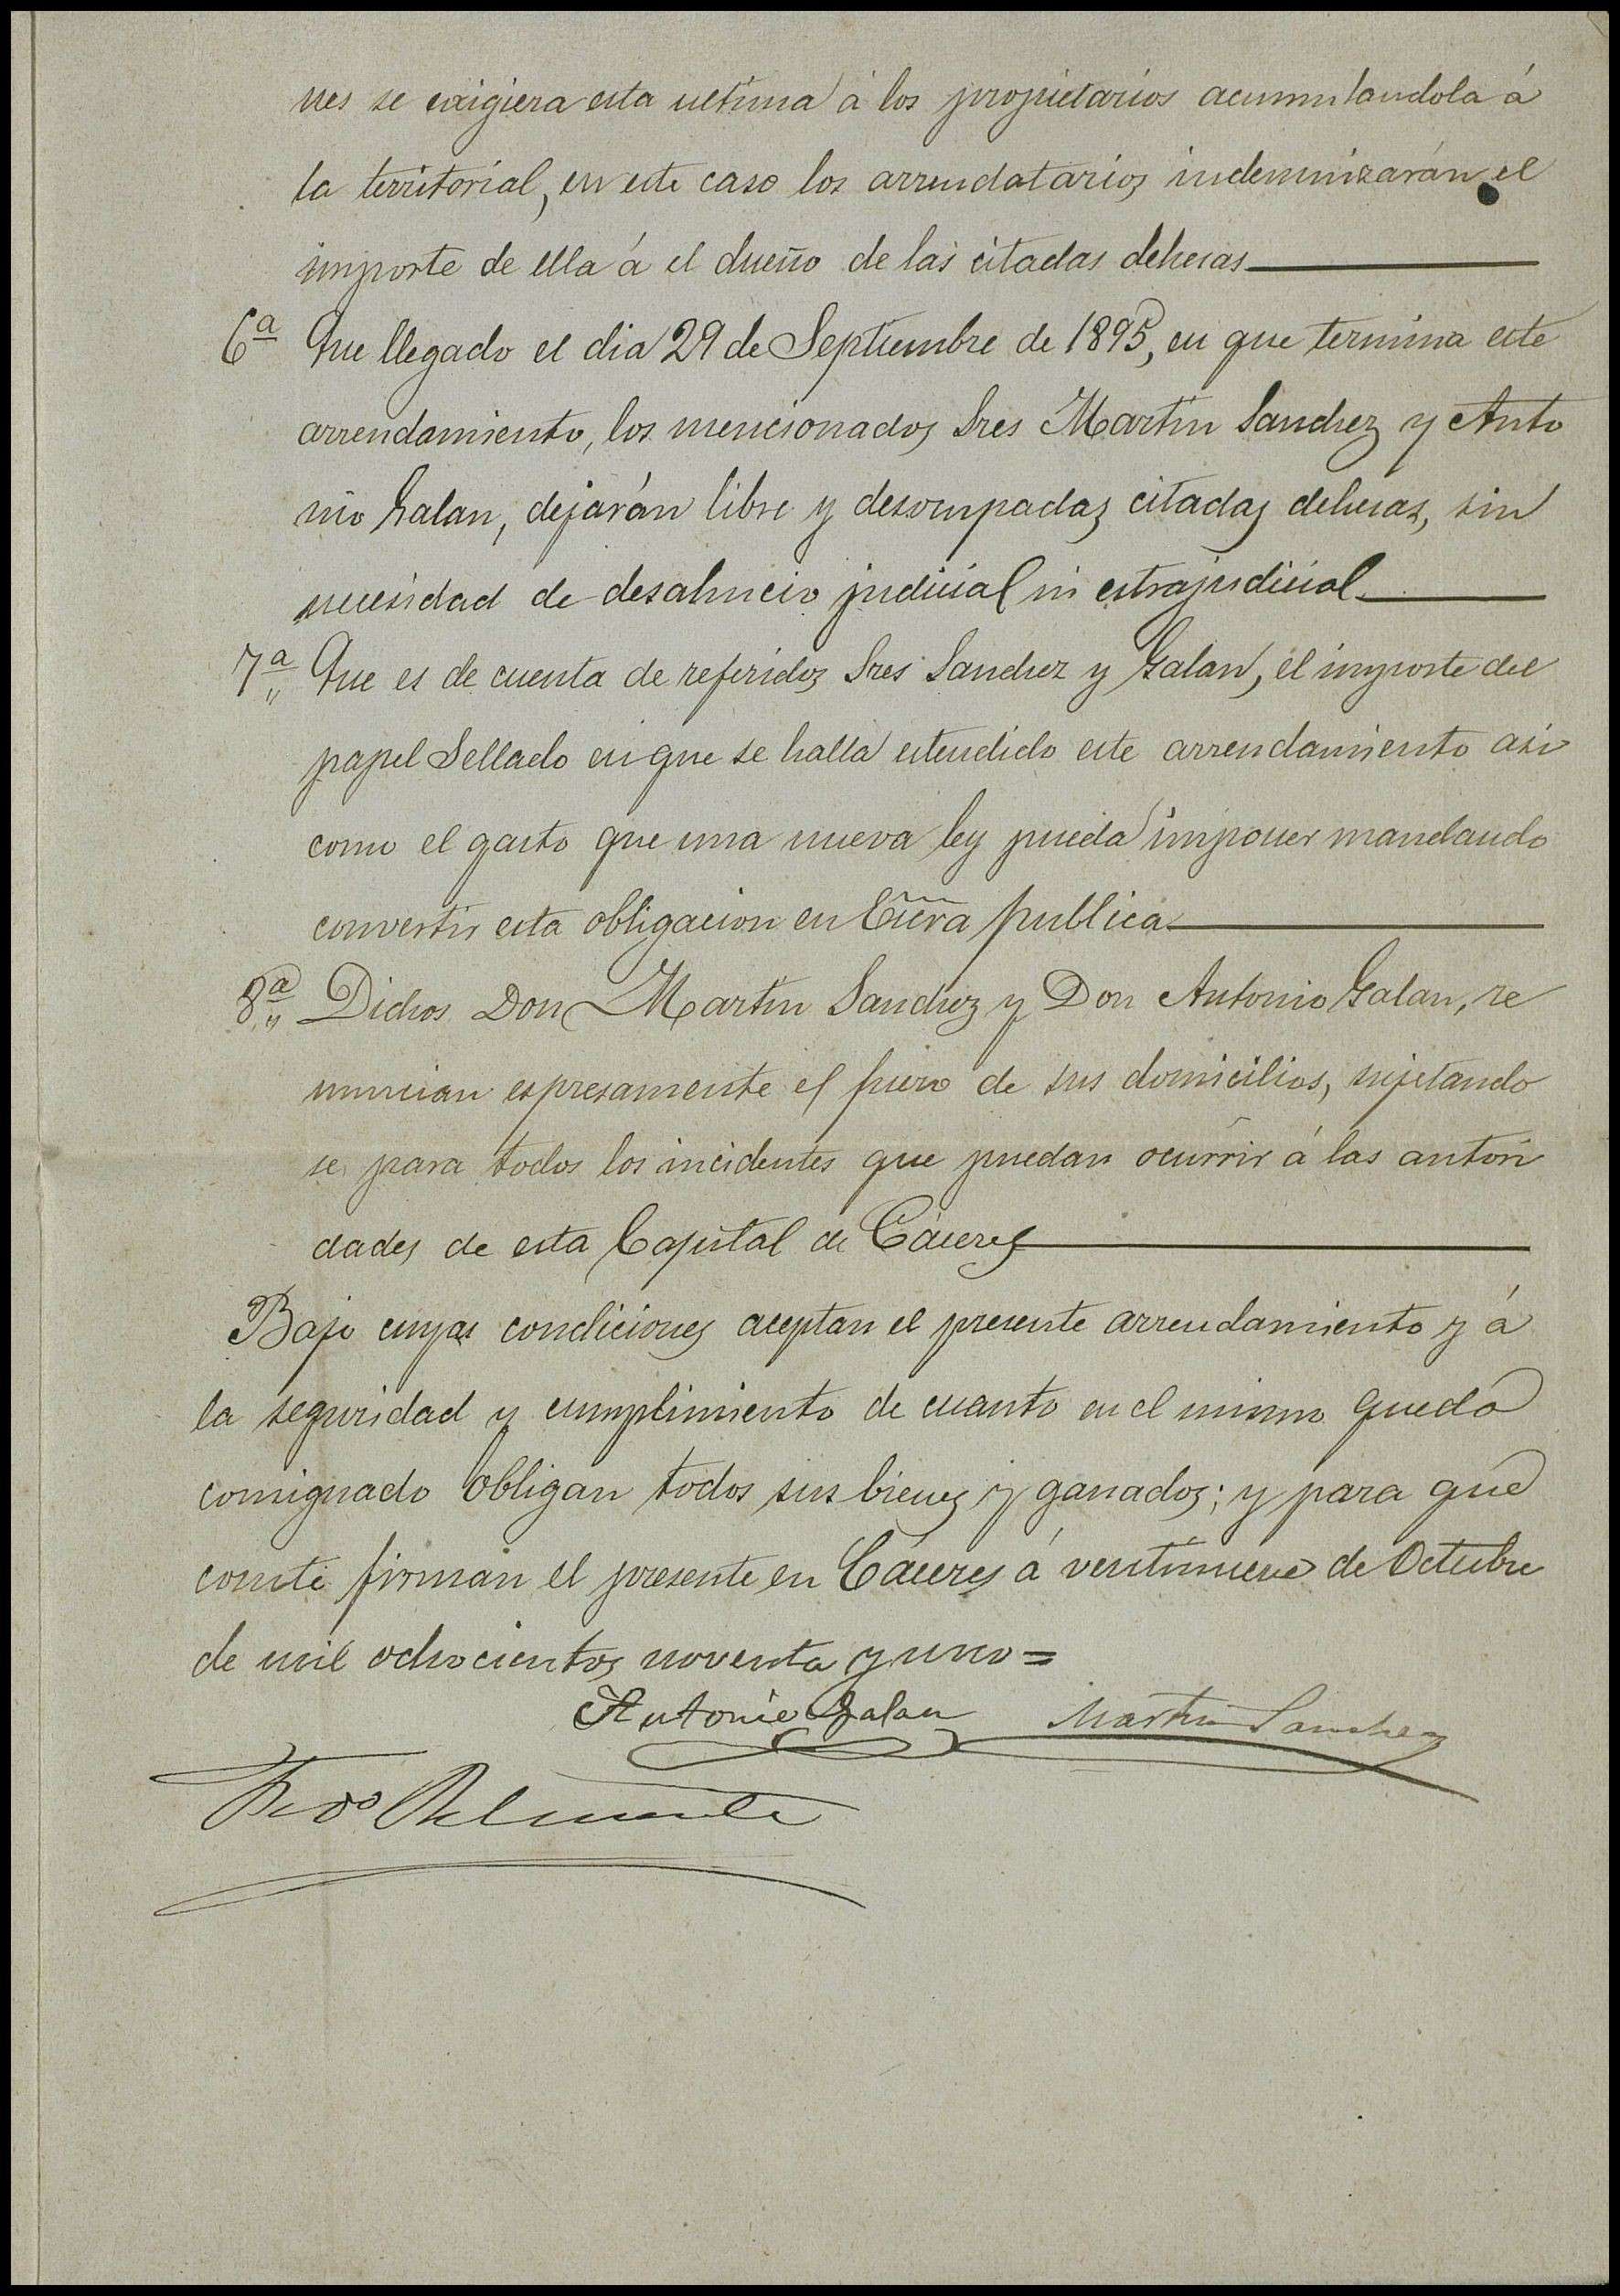 nes se exigiera esta ultima á los propietarios acumulandola á
la territorial, en este caso los arrendatarios indemnizarán el
importe de ella á el dueño de las citadas dehesas
6ª Que llegado el dia 29 de Septiembre de 1895, en que termina este
arrendamiento, los mencionados Sres Martin Sanchez y Anto
nio Galan, dejarán libre y desocupadas citadas dehesas, sin
necesidad de desahucio judicial ni estrajudicial.
7ª,, Que es de cuenta de referidos Sres Sanchez y Galan, el importe del
papel Sellado en que se halla estendido este arrendamiento asi
como el gasto que una nueva ley pueda imponer mandando
convertir esta obligacion en publica.
8ª,, Dichos Don Martin Sanchez y Don Antonio Galan, re
nuncian espresamente el fuero de sus domicilios, sujetando
se para todos los incidentes que puedan ocurrir á las autori
dades de esta Capital de Cáceres
Bajo cuyas condiciones aceptan el presente arrendamiento y á
la seguridad y cumplimiento de cuanto en el mismo queda
consignado obligan todos sus bienes y ganados; y para que
conste firman el presente en Cáceres á ventinueve de Octubre
de mil ochocientos noventa y uno=
Antonio Galan Martin Sanchez
Belmonte